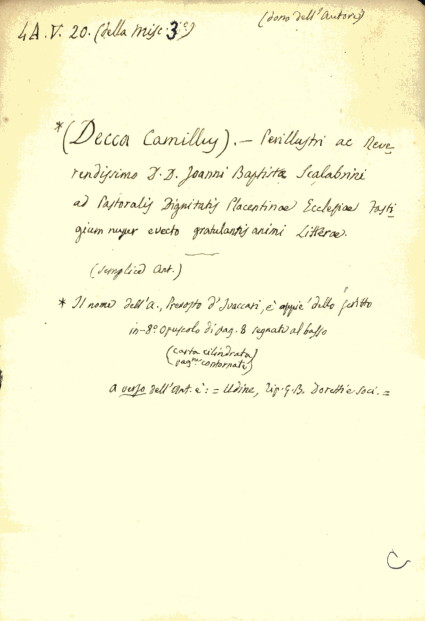 (dono dell'Autore)
4A.V. 20. (della Misc. 3
*(Decca Camillus). — Perillustri ac Reve-
rendissimo D. D. Joanni Baptistæ Scalabrini
ad Pastoralis Dignitatis Placentinae Ecclesiae Fasti-
gium nuper evecto gratulantis animi Litterae.
(semplice ant.)
* Il nome dell'A., Preposto d' , è appiè dello scritto
in-8º opuscolo di pag. 8 segnate al basso
(carta cilindrata
pag.ne contornate)
a verso dell'Ant. è: = Udine, Tip. G. B. Doretti e Soci. =
C